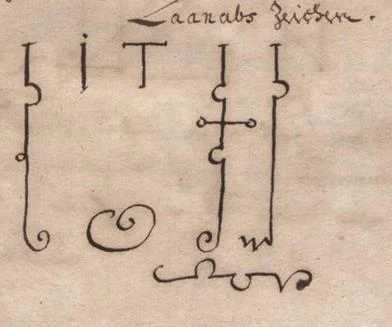 Laanabs Zeichen.